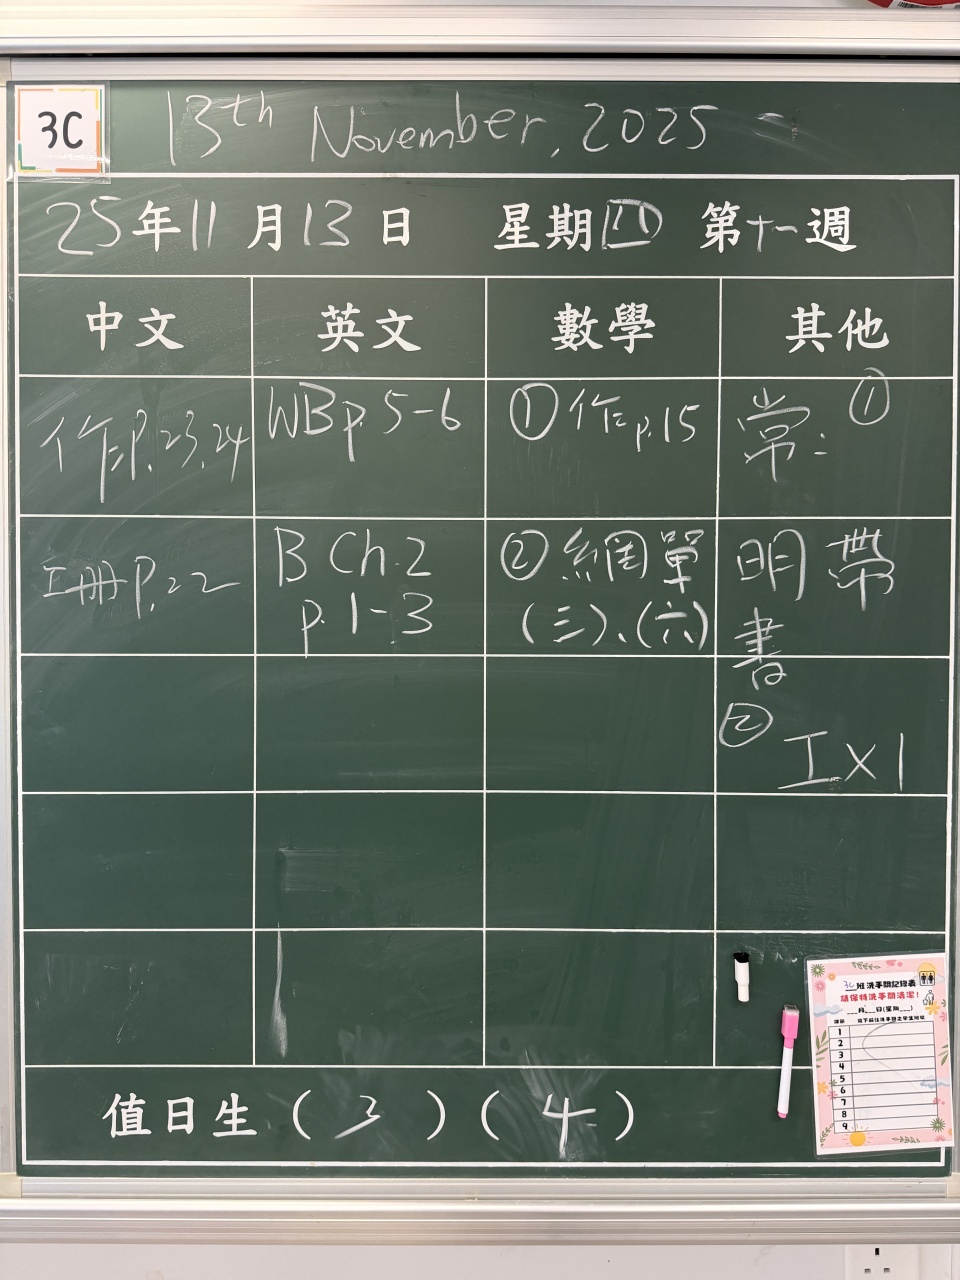 3C
13th November, 2025
25年11月13日 星期四 第十一週
中文 英文 數學 其他
作P.23,24
WB p. 5-6
① 作 p.15
常: ①
工冊P.22
B Ch.2
p. 1-3
② 網單
(三)、(六)
明帶
書
② 工x1
值日生 (3) (4)
3C班洗手間記錄表
請保持洗手間清潔!
___月___日(星期___)
1
2
3
4
5
6
7
8
9